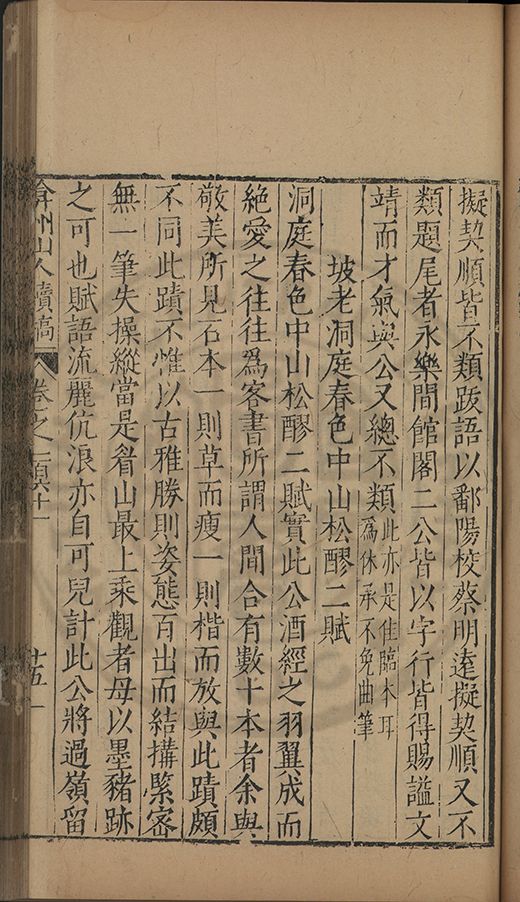 擬契順皆不類跋語以鄱陽校蔡明遠擬契順又不
類題尾者永樂間館閣二公皆以字行皆得賜謚文
靖而才氣與公又總不類此亦是佳臨本耳
為休承不免曲筆
坡老洞庭春色中山松醪二賦
洞庭春色中山松醪二賦實此公酒經之羽翼成而
絕愛之往往爲客書所謂人間合有數十本者余與
敬美所見石本一則草而瘦一則楷而放與此蹟頗
不同此蹟不惟以古雅勝則姿態百出而結搆緊密
無一筆失操縱當是眉山最上乘觀者毋以墨豬跡
之可也賦語流麗伉浪亦自可兒計此公將過嶺留
弇州山人續稿 卷之一百六十一 十五